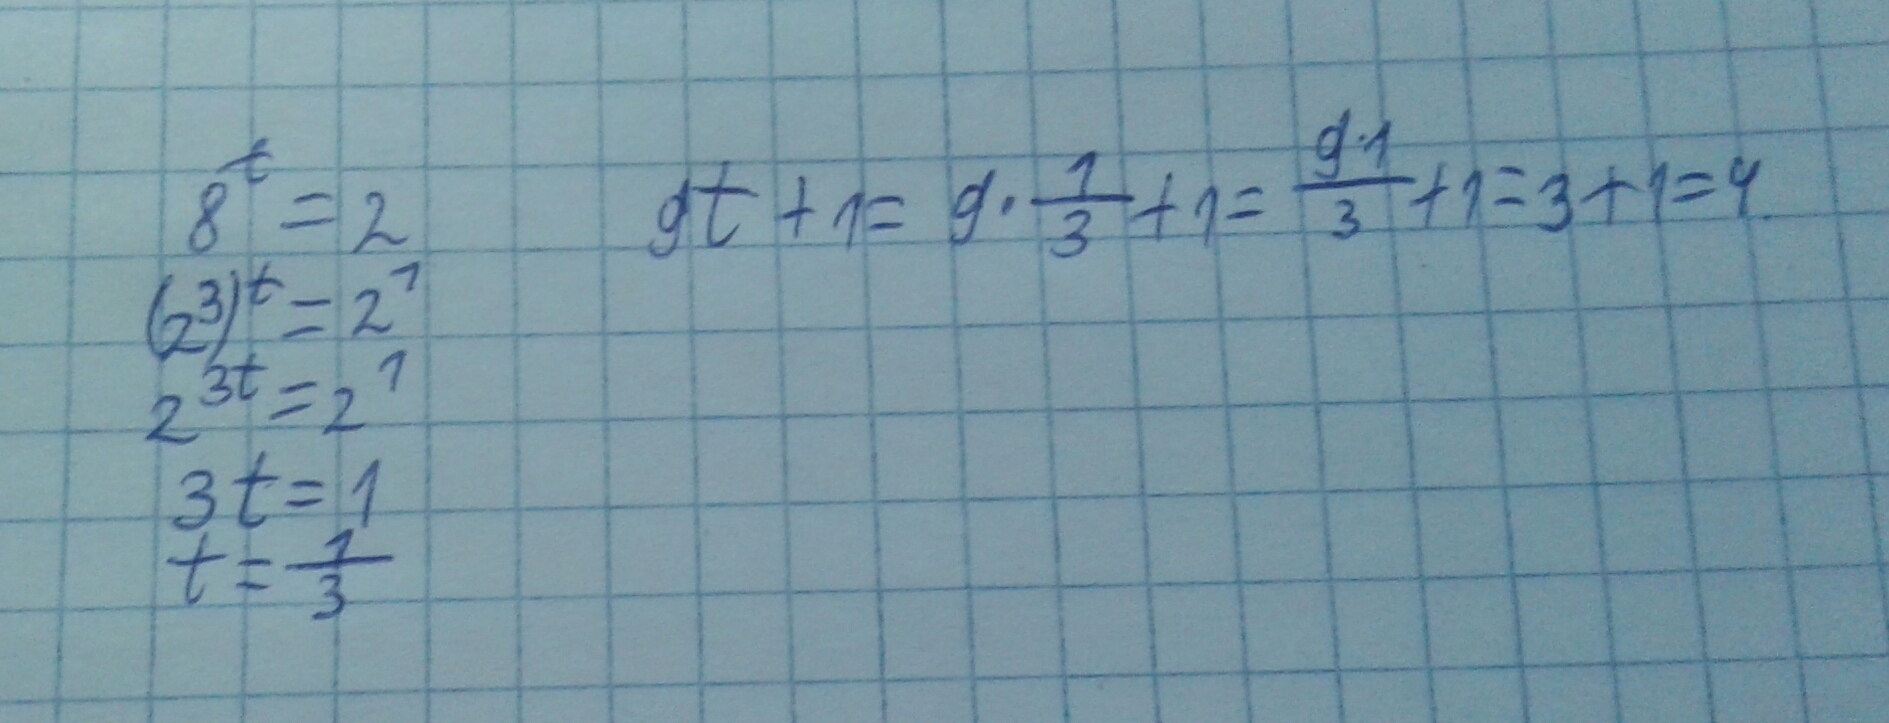 8^t = 2
(2^3)^t = 2^1
2^{3t} = 2^1
3t = 1
t = \frac{1}{3}
9t + 1 = 9 \cdot \frac{1}{3} + 1 = \frac{9 \cdot 1}{3} + 1 = 3 + 1 = 4